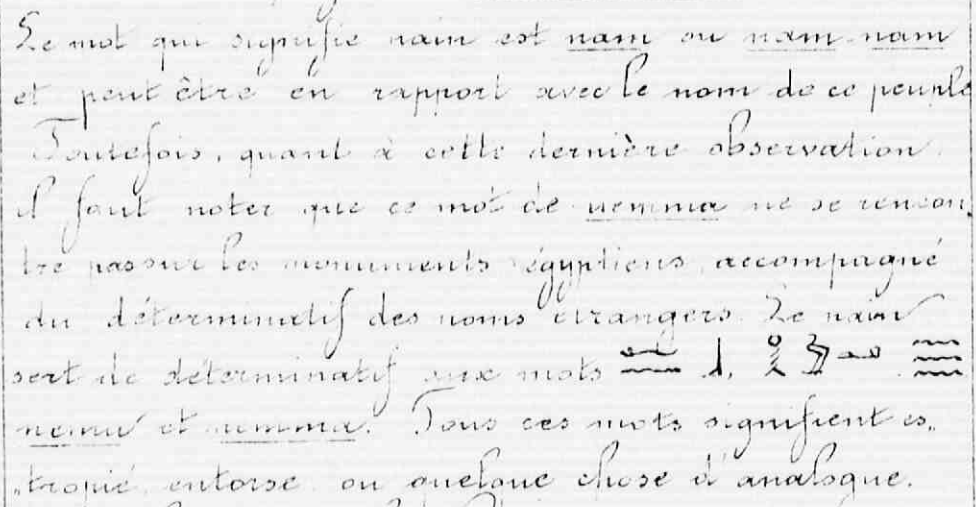 Le mot qui signifie nain est nam ou nam-nam
et peut être en rapport avec le nom de ce peuple
Toutefois, quant à cette dernière observation
il faut noter que ce mot de nemma ne se rencon,
tre pas sur les monuments égyptiens, accompagné
du déterminatif des noms étrangers. Le nain
sert de déterminatif aux mots
nemu et nemma. Tous ces mots signifient es„
„tropié, entorse ou quelque chose d'analogue.